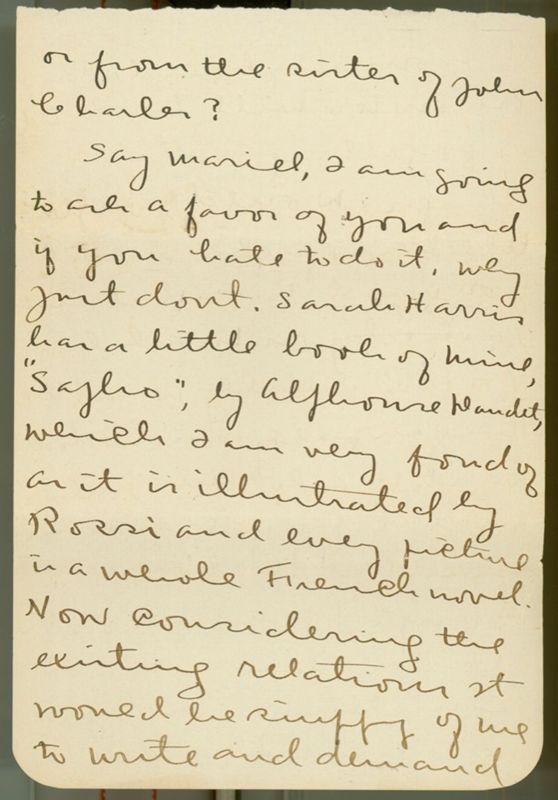 or from the sister of John
Charles?
Say Mariel, I am going
to ask a favor of you and
if you hate to do it, why
just dont. Sarah Harris
has a little book of mine,
"Sapho", by Alphonse Daudet,
which I am very fond of
as it is illustrated by
Rossi and every picture
is a whole French novel.
Now considering the
existing relations it
would be snippy of me
to write and demand